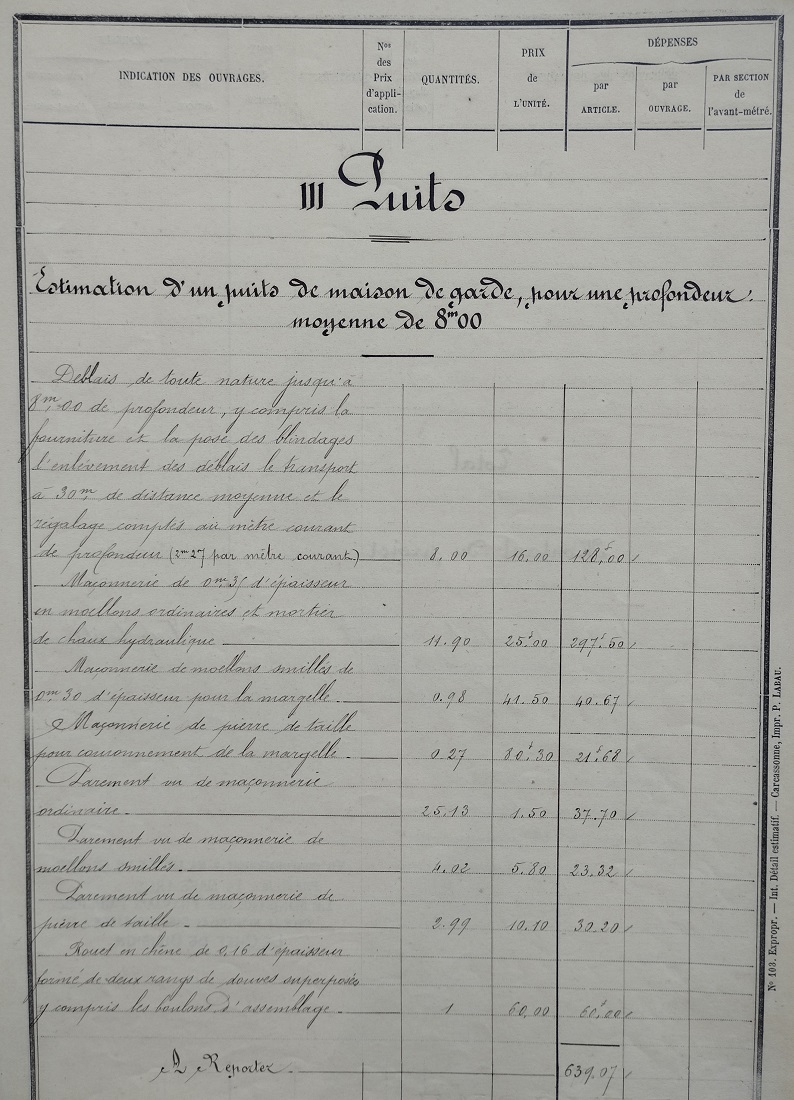 INDICATION DES OUVRAGES.
Nos des Prix d'appli- cation.
QUANTITÉS.
PRIX de L'UNITÉ.
DÉPENSES
par ARTICLE.
par OUVRAGE.
PAR SECTION de l'avant-métré.
III Puits
Estimation d'un puits de maison de garde, pour une profondeur
moyenne de 8m00
Déblais de toute nature jusqu'à
8m,00 de profondeur, y compris la
fourniture et la pose des blindages
l'enlèvement des déblais le transport
à 30m de distance moyenne et le
régalage comptés au mètre courant
de profondeur (2m27 par mètre courant) 8.00 16.00 128f00
Maçonnerie de 0m35 d'épaisseur
en moellons ordinaires et mortier
de chaux hydraulique 11.90 25f00 297f50
Maçonnerie de moellons smillés de
0m30 d'épaisseur pour la margelle 0.98 41.50 40.67
Maçonnerie de pierre de taille
pour couronnement de la margelle 0.27 80f30 21f68
Parement vu de maçonnerie
ordinaire. 25.13 1.50 37.70
Parement vu de maçonnerie de
moellons smillés. 4.02 5.80 23.32
Parement vu de maçonnerie de
pierre de taille 2.99 10.10 30.20
Rouet en chêne de 0.16 d'épaisseur
formé de deux rangs de douves superposés
y compris les boulons d'assemblage 1 60,00 60f00
A Reporter 639.07
N° 103. Expropr. — Int. Détail estimatif. — Carcassonne, Impr. P. LABAU.